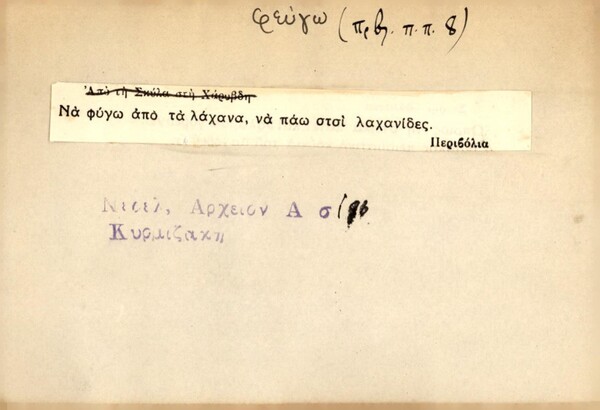 φεύγω (πρβλ. π.π. 8)
Ἀπὸ τὴ Σκύλα στὴ Χάρυβδη
Νὰ φύγω ἀπὸ τὰ λάχανα, νὰ πάω στσὶ λαχανίδες.
Περιβόλια
Αρχειον Α σ
Κυρμιζακη